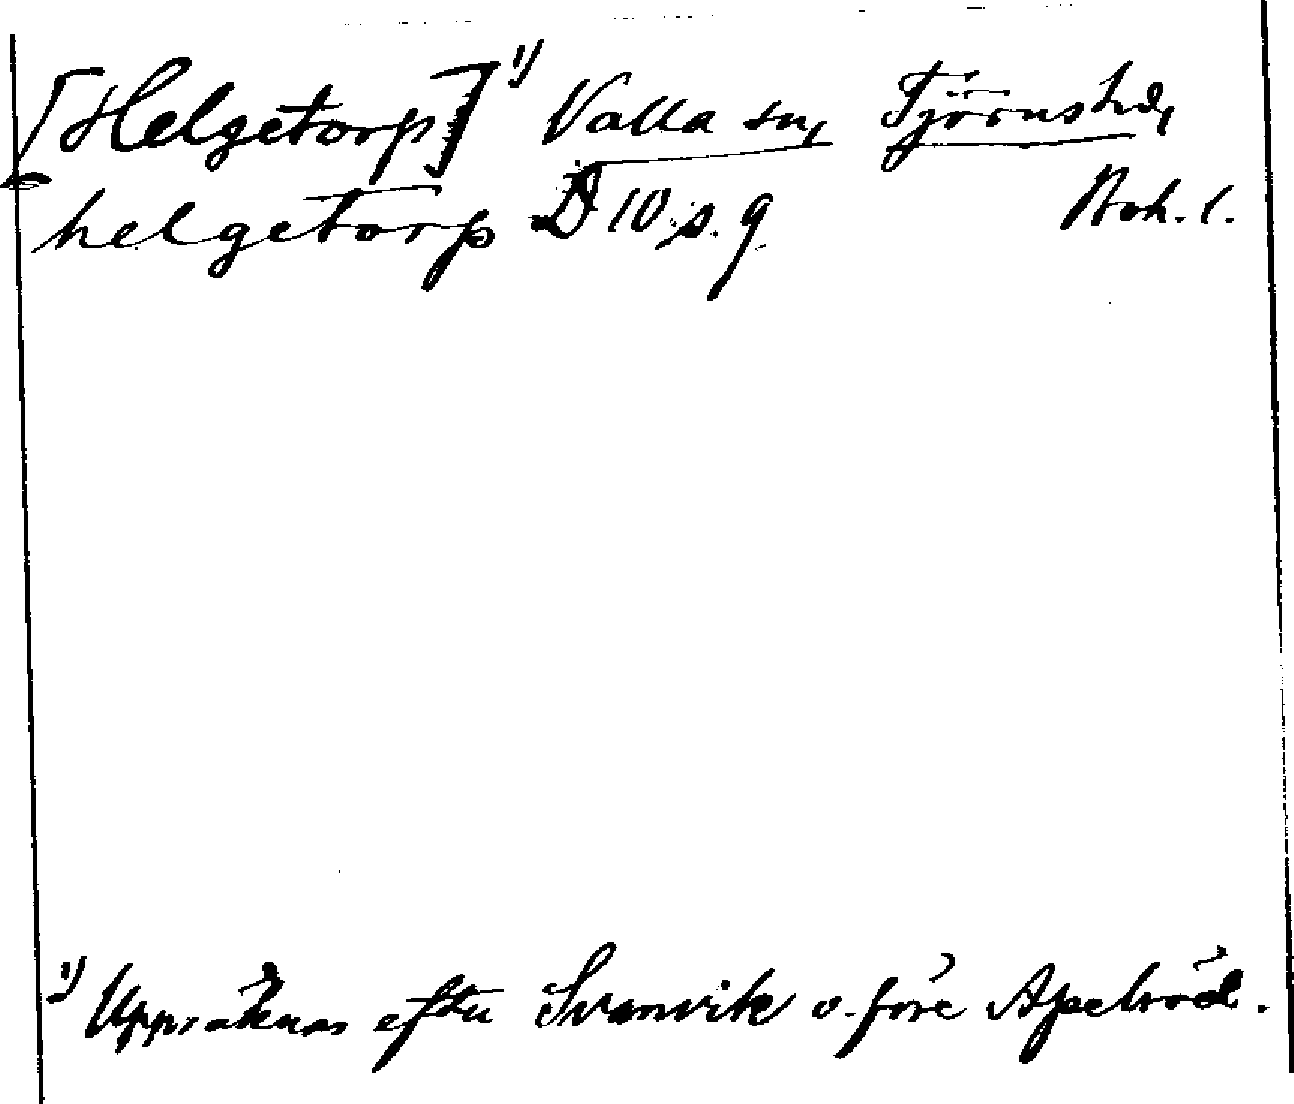 [Helgetorp] 1) Valla sn, Tjörns hd,
helgetorp D 10 s. 9. Boh. l.
1) Uppräknas efter Svanvik o. före Apelröd.